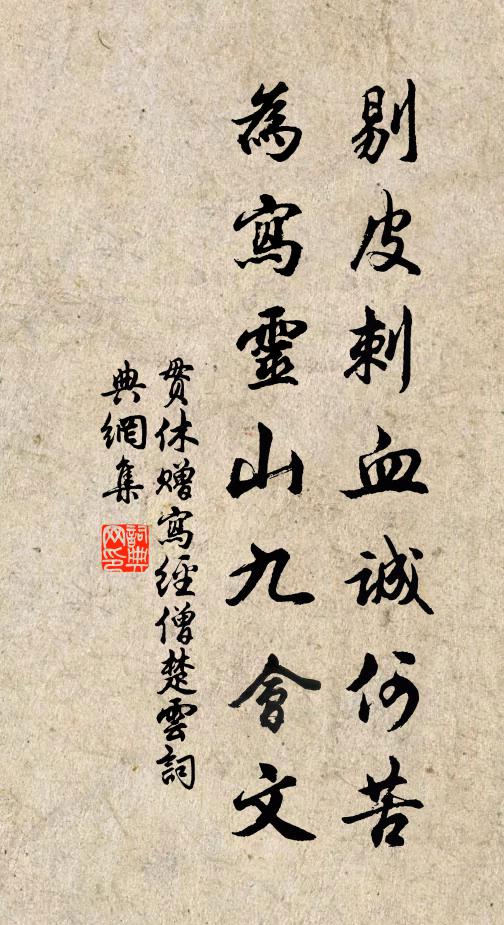 剔皮刺血誠何苦
為寫靈山九會文
貫休贈寫經僧楚雲詞
典網集
詞典
网印